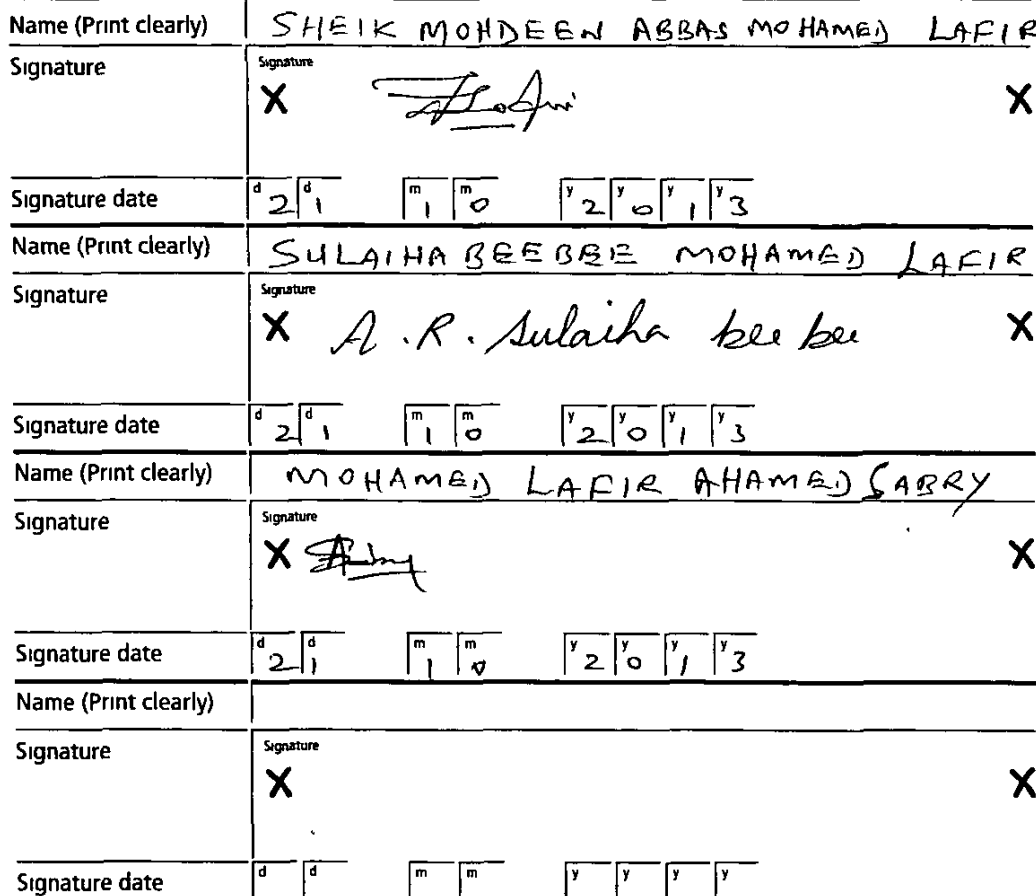 Name (Print clearly) SHEIK MOHDEEN ABBAS MOHAMED LAFIR
Signature Signature
X X
Signature date d2 d1 m1 m0 y2 y0 y1 y3
Name (Print clearly) SULAIHA BEEBEE MOHAMED LAFIR
Signature Signature
X A.R. Sulaiha bee bee X
Signature date d2 d1 m1 m0 y2 y0 y1 y3
Name (Print clearly) MOHAMED LAFIR AHAMED SABRY
Signature Signature
X X
Signature date d2 d1 m1 m0 y2 y0 y1 y3
Name (Print clearly)
Signature Signature
X X
Signature date d d m m y y y y